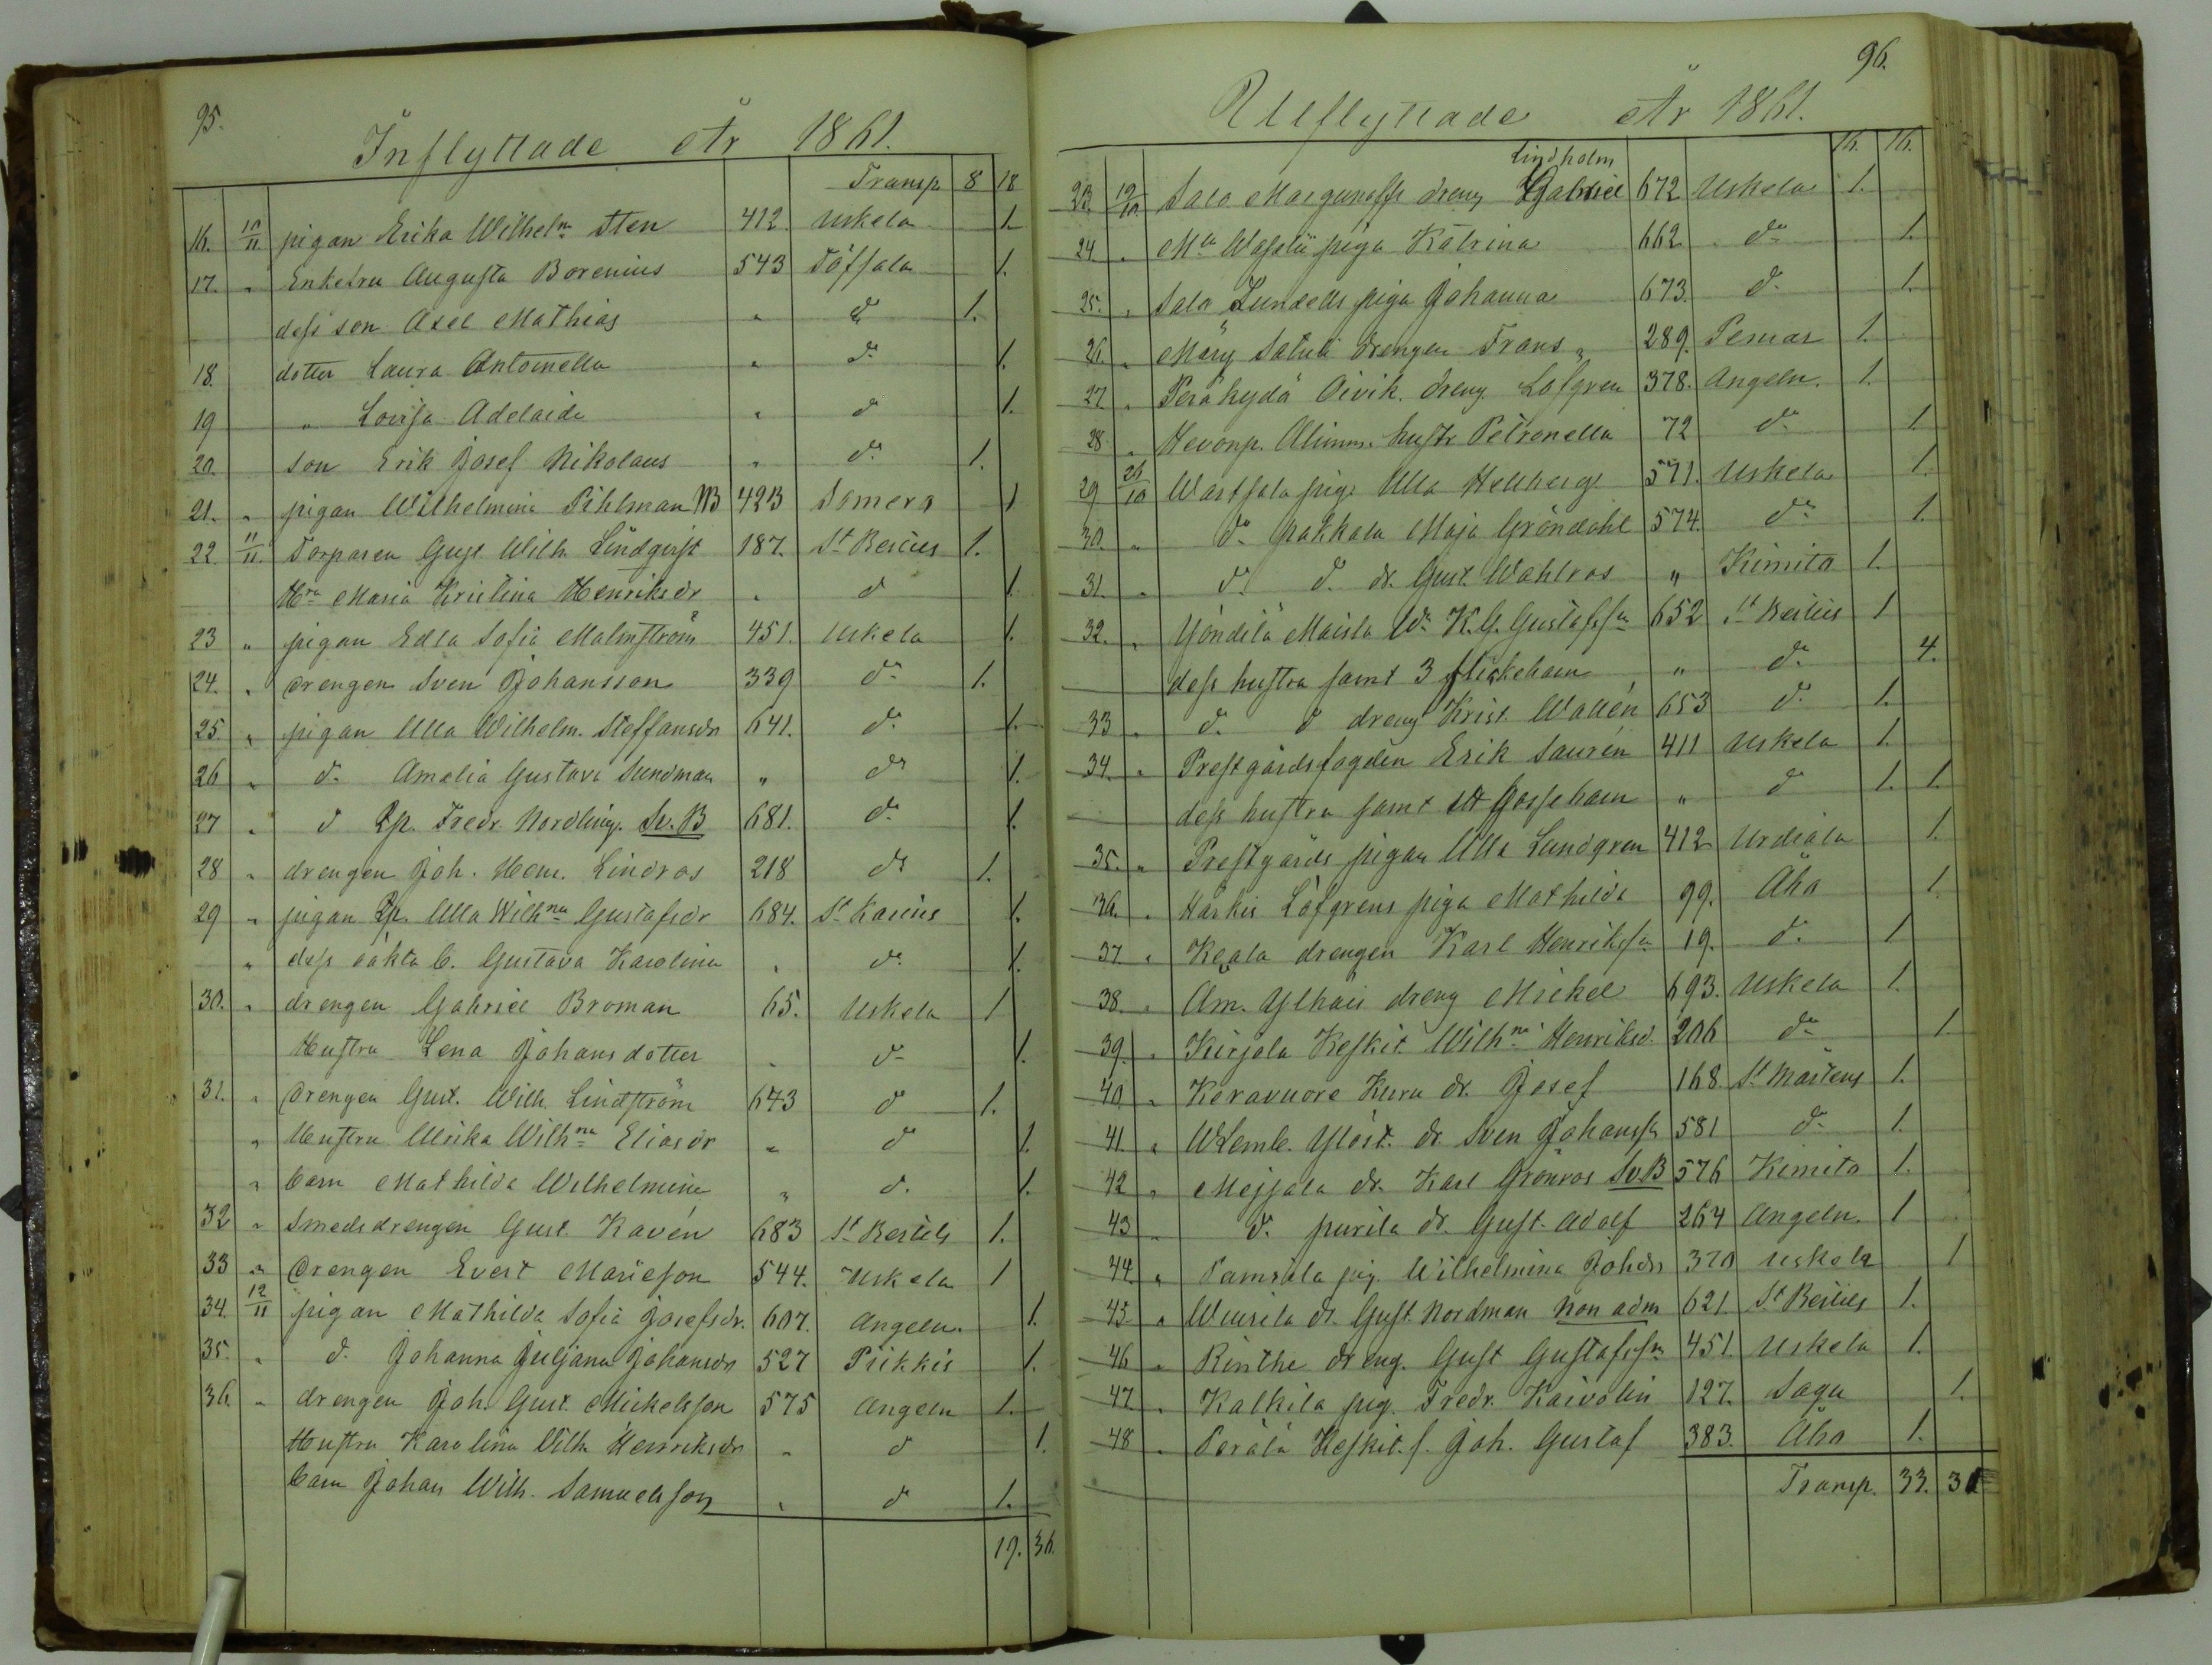 95.
Inflyttade År 1861.
Transp. 8 18
16. 10/11. pigan Erika Wilhelmna Sten 412. Uskela 1.
17. " Enkefru Augusta Borenius 543 Töfsala 1.
dess son Axel Mathias " d 1.
18. dotter Laura Antoinetta " do 1.
19 " Lovisa Adelaide " d 1.
20. son Erik Josef Nikolaus " do 1.
21. " pigan Wilhelmina Pihlman NB 423 Somero 1
22. 11/11. Torparen Gust. Wilh. Lindqvist 187. St Bertils 1.
Hru Maria Kristina Henriksdr " d 1.
23 " pigan Edla Sofia Malmström 451. Uskela 1.
24. " drengen Sven Johansson 339 do 1.
25. " pigan Ulla Wilhelm. Steffansdr 641. do 1.
26 " do Amalia Gustava Sundman " do 1.
27 " d Lp. Fredr. Nordling. Sv. B 681. do 1.
28 " drengen Joh. Henr. Lindros 218 do 1.
29 " pigan Lp. Ulla Wilhna Gustafsdr 684. St Karins 1.
" dess oäkta b. Gustava Karolina " do 1.
30. " drengen Gabriel Broman 65. Uskela 1
Hustru Lena Johansdotter " do 1.
31. " drengen Gust. Wilh. Lindström 643 d 1.
" Hustru Ulrika Wilhna Eliasdr " d 1.
" barn Mathilda Wilhelmina " d. 1.
32 " Smedsdrengen Gust. Kavén 683 St Bertils 1.
33 " drengen Evert Marieson 544. Uskela 1
34. 12/11 pigan Mathilda Sofia Josefsdr. 607. Angeln. 1.
35. " d. Johanna Juljana Johansdr 527 Piikkis 1.
36. " drengen Joh. Gust. Mickelsson 575 Angeln 1.
Hustru Karolina Vilh. Henriksdr " d 1.
barn Johan Wilh. Samuelsson " d 1.
19. 36.
96.
Utflyttade År 1861.
16. 16.
Lindholm
23. 12/10. Salo Margunoffs dreng Gabriel 672 Uskela 1.
24. " Mla piga Katrina 662. do 1.
25. " Salo Lundells piga Johanna 673. do 1.
26. " Märy Satuli drengen Frans " 289. Pemar 1.
27. " Peräkylä Oivik. dreng Löfgren 378. Angeln. 1.
28 " Hevonp. Alimm. hustr Petronella 72 do 1
29 26/10 Wartsala pig. Ulla Hellberg 571. Uskela 1.
30. " do pakkala Maja Gröndahl 574. do 1.
31. " do do dr. Gust. Wahlros " Kimito 1.
32. " Yöndilä Maisla K. G. Gustafssn 652 St Bertils 1
dess hustru samt 3 flickebarn " do 4.
33 " do d dreng Krist. Wallén 653 do 1.
34. " Prestgårdsfogden Erik Saurén 411 Uskela 1.
dess hustru samt ett gossebarn " d 1. 1.
35. " Prestgårds pigan Ulla Lundgren 412 Urdiala 1.
36. " Härkis Löfgrens piga Mathilda 99. Åbo 1.
37. " Keala drengen Karl Henrikssn 19. do 1
38. " Am. Ylhäis dreng Mickel 693. Uskela 1.
39. " Kirjola Keskit. Wilhna Henriksd. 206 do 1.
40 " Keravuore Kuru dr. Josef 168. St Mårtens 1.
41. " WLemb. Ylöst. dr. Sven Johanss 581 do 1.
42 " Mejjala dr. Karl Grönros Sv.B 576 Kimito 1.
43 " do purila dr. Gust. Adolf 264 Angeln. 1
44. " Pamsila pig. Wilhelmina Johdr 370 Uskela 1
45 " Wuurila dr. Gust. Nordman non adm 621. St Bertils 1.
46 " Rinthe dreng. Gust Gustafssn 451. Uskela 1.
47 " Kalkila pig. Fredr. Kaivolin 127. Sagu 1.
48 " Perälä Keskit. s. Joh. Gustaf 383. Åbo 1.
Transp. 33. 31